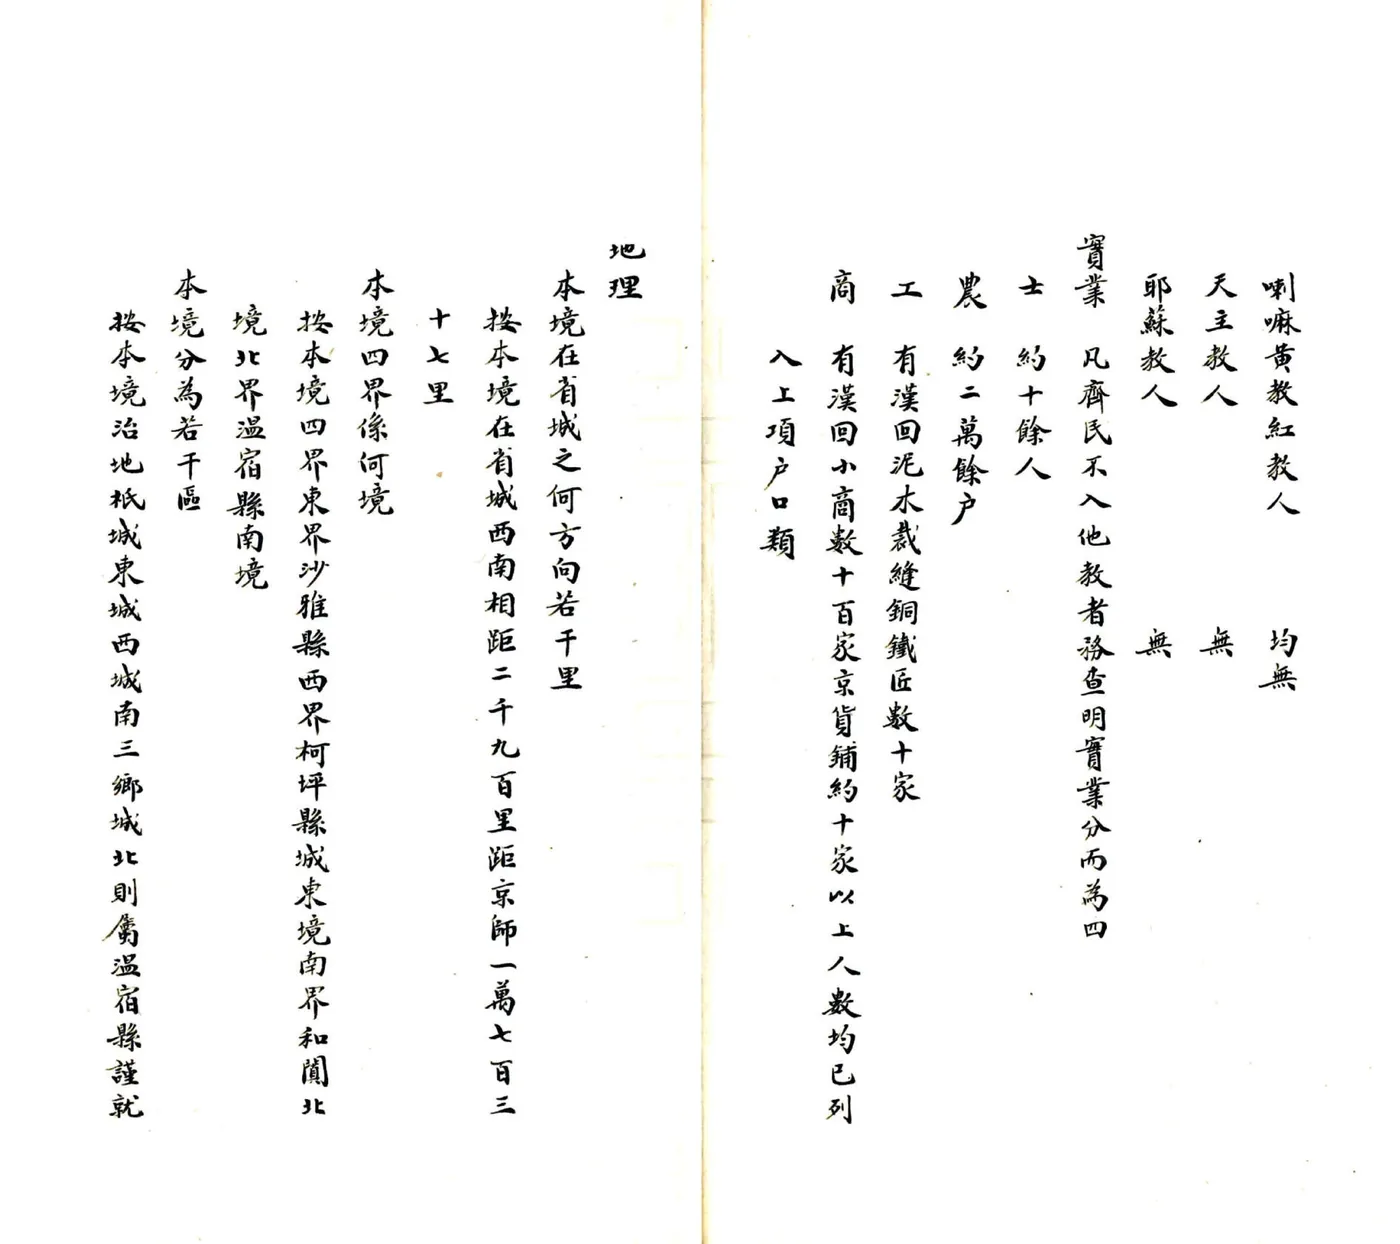 喇嘛黄教紅教人 均無
天主教人 無
耶蘇教人 無
實業 凡齊民不入他教者務查明實業分而為四
士 約十餘人
農 約二萬餘户
工 有漢回泥木裁縫銅鐵匠數十家
商 有漢回小商數十百家京貨鋪約十家以上人數均已列
入上項户口類
地理
本境在省城之何方向若干里
按本境在省城西南相距二千九百里距京師一萬七百三
十七里
本境四界係何境
按本境四界東界沙雅縣西界柯坪縣城東境南界和闐北
境北界温宿縣南境
本境分為若干區
按本境治地祇城東城西城南三鄉城北則屬温宿縣謹就